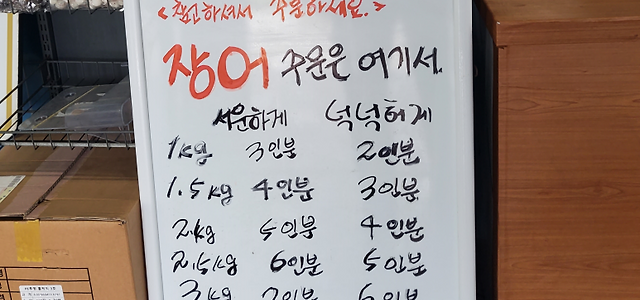 <참고하셔서 주문하세요.>
장어 주문은 여기서.
서운하게 넉넉허게
1kg 3인분 2인분
1.5kg 4인분 3인분
2kg 5인분 4인분
2.5kg 6인분 5인분
3kg 7인분 6인분